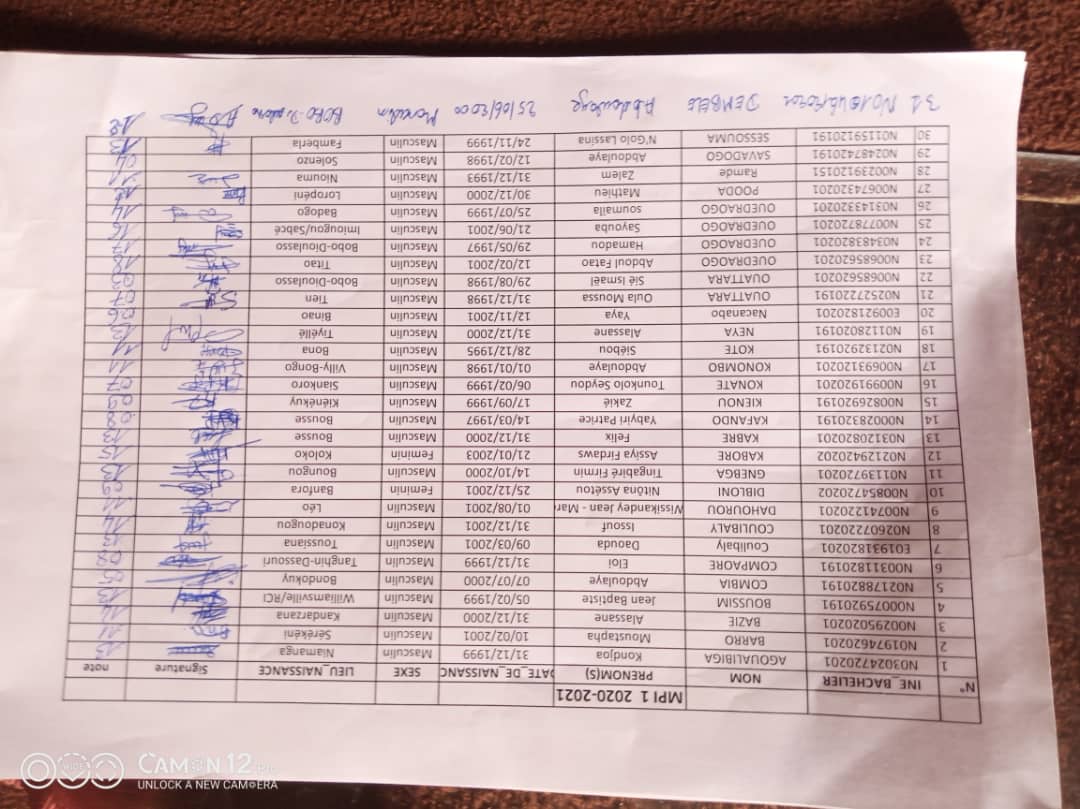 CAMON 12
UNLOCK A NEW CAMERA
MPI 1 2020-2021
N° INE_BACHELIER NOM PRENOM(S) DATE_DE_NAISSANC SEXE LIEU_NAISSANCE Signature note
1 N03024720201 AGOUALIBIGA Kondjoa 31/12/1999 Masculin Niamanga 13
2 N01974620201 BARRO Moustapha 10/02/2001 Masculin Sérékéni 11
3 N00295020201 BAZIE Alassane 31/12/2000 Masculin Kandarzana 14
4 N00075920191 BOUSSIM Jean Baptiste 05/02/1999 Masculin Williamsville/RCI 13
5 N02178820191 COMBIA Abdoulaye 07/07/2000 Masculin Bondokuy 05
6 N00311820191 COMPAORE Eloi 31/12/1999 Masculin Tanghin-Dassouri 08
7 E01931820201 Coulibaly Daouda 09/03/2001 Masculin Toussiana 13
8 N02607220201 COULIBALY Issouf 31/12/2001 Masculin Konadougou 14
9 N00741220201 DAHOUROU Wissikandey Jean - Marc 01/08/2001 Masculin Léo 11
10 N00854720202 DIBLONI Nitôna Assétou 25/12/2001 Feminin Banfora 09
11 N01139720201 GNEBGA Tingabiré Firmin 14/10/2000 Masculin Boungou 13
12 N02129420202 KABORE Assiya Firdaws 21/01/2003 Feminin Koloko 15
13 N03120820201 KABRE Felix 31/12/2000 Masculin Bousse 13
14 N00028320191 KAFANDO Yabyiri Patrice 14/03/1997 Masculin Bousse 08
15 N00826920191 KIENOU Zakié 17/09/1999 Masculin Kiénékuy 09
16 N00991920201 KONATE Tounkolo Seydou 06/02/1999 Masculin Siankoro 07
17 N00693120201 KONOMBO Abdoulaye 01/01/1998 Masculin Villy-Bongo 11
18 N02132920191 KOTE Siébou 28/12/1995 Masculin Bona 11
19 N01128020191 NEYA Alassane 31/12/2000 Masculin Tiyéllé 13
20 E00921820201 Nacanabo Yaya 12/11/2001 Masculin Binao 06
21 N02527220191 OUATTARA Oula Moussa 31/12/1998 Masculin Tien 07
22 N00685620201 OUATTARA Sié Ismaël 29/08/1998 Masculin Bobo-Dioulasso 03
23 N00685620201 OUEDRAOGO Abdoul Fatao 12/02/2001 Masculin Titao 18
24 N03483820201 OUEDRAOGO Hamadou 29/05/1997 Masculin Bobo-Dioulasso 17
25 N00778720201 OUEDRAOGO Sayouba 21/06/2001 Masculin Imiougou/Sabcé 16
26 N03143320201 OUEDRAOGO soumaïla 25/07/1999 Masculin Badogo 14
27 N00674320201 POODA Mathieu 30/12/2000 Masculin Loropéni 12
28 N00239120151 Ramde Zalem 31/12/1993 Masculin Niouma 11
29 N02487420191 SAVADOGO Abdoulaye 12/02/1998 Masculin Solenzo 04
30 N01159120191 SESSOUMA N'Golo Lassina 24/11/1999 Masculin Famberla 13
31 DEMBELE Abdoulaye 25/06/2000 Masculin BOBO-Dioulasso 12